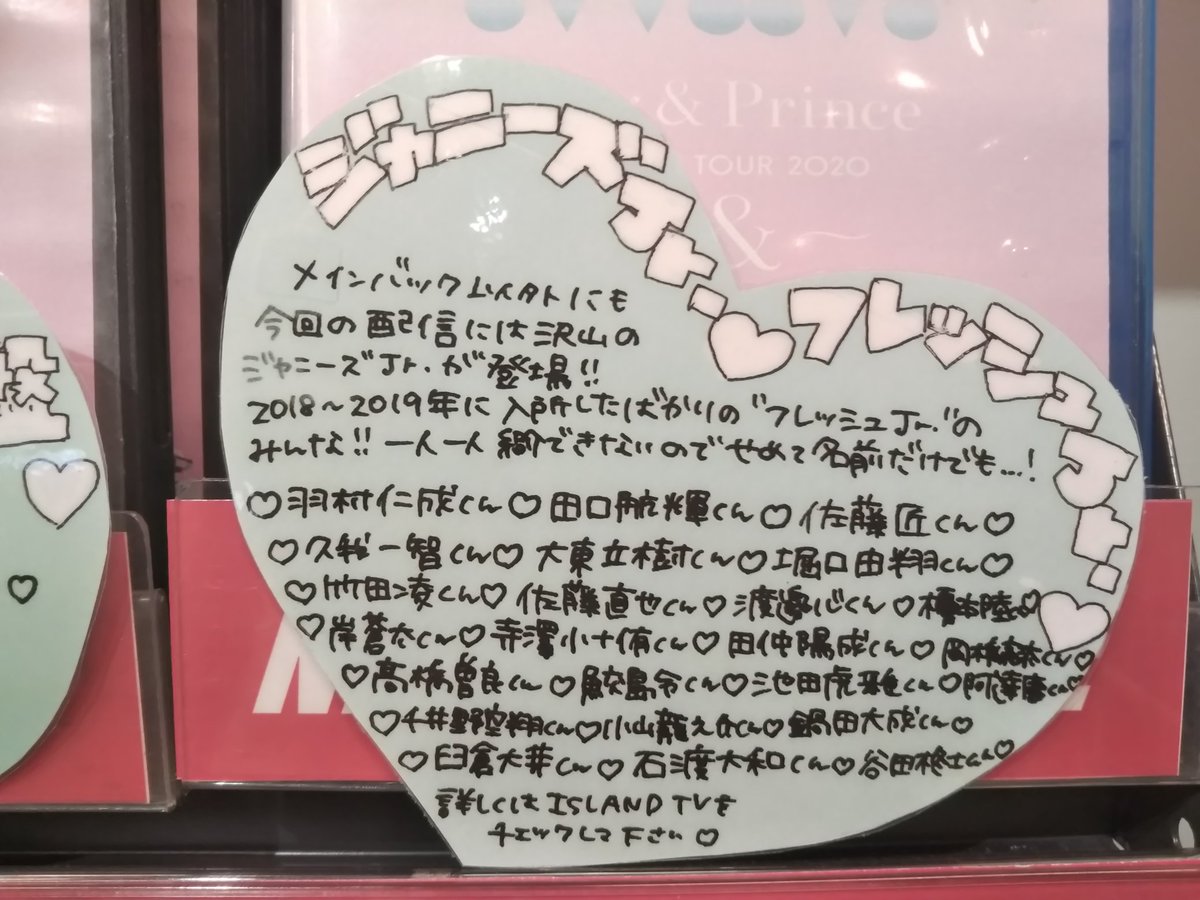 & Prince
TOUR 2020
&
ジャニーズJr.♡フレッシュJr.♡
メインバック以外にも
今回の配信には沢山の
ジャニーズJr.が登場!!
2018～2019年に入所したばかりの"フレッシュJr."の
みんな!!一人一人 紹介できないのでせめて名前だけでも…!
♡羽村仁成くん♡田口航輝くん♡佐藤匠くん♡
♡久我一智くん♡大東立樹くん♡堀口由翔くん♡
♡竹田凌くん♡佐藤直也くん♡渡邉心くん♡榎本陸
♡岸蒼太くん♡寺澤小十侑くん♡田仲陽成くん♡くん♡
♡髙橋曽良くん♡鮫島令くん♡池田虎雅くん♡阿達慶くん♡
♡千井野空翔くん♡小山龍之介くん♡鍋田大成くん♡
♡臼倉大芽くん♡石渡大和くん♡谷田柊士くん♡
詳しくはISLAND TVを
チェックして下さい♡